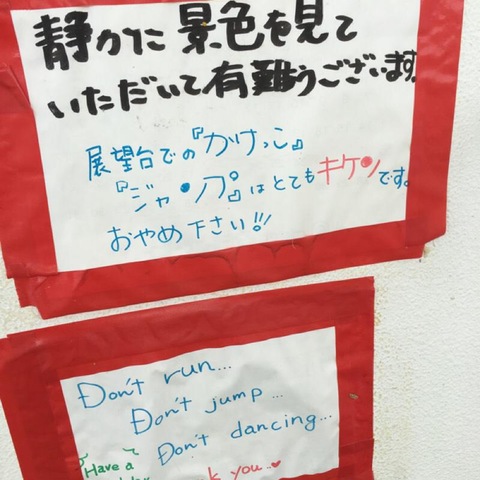 静かに景色を見て
いただいて有難うございます
展望台での『かけっこ』
『ジャンプ』はとてもキケンです。
おやめ下さい!!!
Don't run...
Don't jump...
Don't dancing...
Have a
you..♥